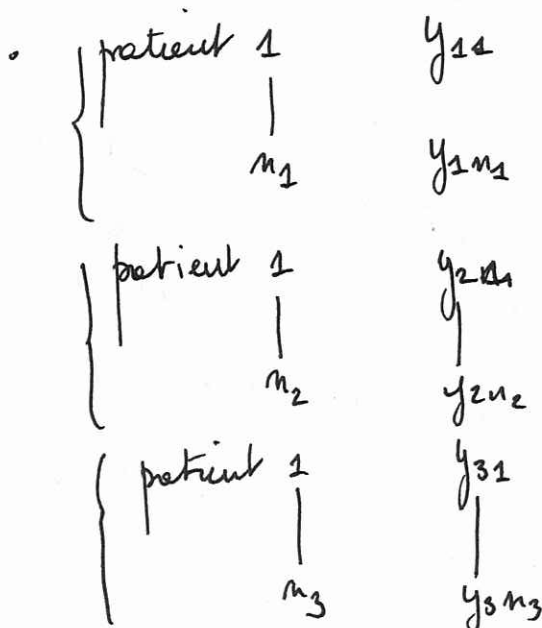 patient 1 y₁₁
n₁ y₁n₁
patient 1
n₂ y₂n₂
patient 1 y₃₁
n₃ y₃n₃